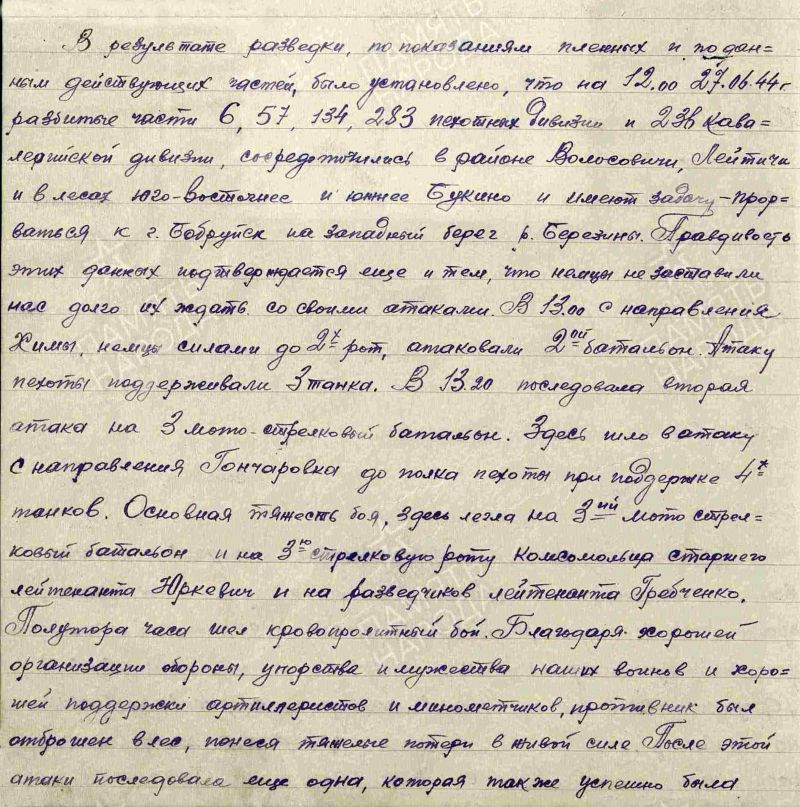 В результате разведки, по показаниям пленных и по дан=
ным действующих частей, было установлено, что на 12.00 27.06.44 г
разбитые части 6, 57, 134, 283 пехотных дивизии и 23в Кава=
лерийской дивизии, сосредоточились в районе Волосовичи, Лейтичи
и в лесах юго-Восточнее и южнее Букино и имеют задачу-прор-
ваться к г. Бобруйск на западный берег р. Березины. Правдивость
этих данных подтверждается еще и тем, что немцы не заставили
нас долго их ждать со своими атаками. В 13.00 с направления
Химы, немцы силами до 2х рот, атаковали 2ой батальон. Атаку
пехоты поддерживали 3 танка. В 13.20 последовала вторая
атака на 3 мото-стрелковый батальон. Здесь шло в атаку
с направления Гончаровка до полка пехоты при поддержке 4х
танков. Основная тяжесть боя, здесь легла на 3ий мото стрел=
ковый батальон и на 3ю стрелковую роту Комсомольца старшего
лейтенанта Юркевич и на разведчиков лейтенанта Гребченко.
Полутора часа шел кровопролитный бой. Благодаря хорошей
организации обороны, упорства и мужества наших воинов и хоро=
шей поддержки артиллеристов и минометчиков, противник был
отброшен в лес, понеся тяжелые потери в живой силе После этой
атаки последовала еще одна, которая также успешно была
ПАМЯТЬ НАРОДА